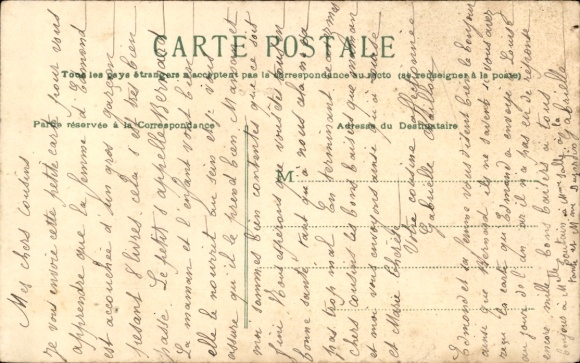 CARTE POSTALE
Tous les pays étrangers n'acceptent pas la correspondance au recto (se renseigner à la poste)
Partie réservée à la Correspondance
Adresse du Destinataire
M
Mes chers cousins
je vous envoie cette petite carte pour vous
apprendre que la femme d'Edmond
est accouchée d'un gros garçon
pesant 8 livres, cela s'est très bien
passé Le petit s'appelle Bernard
La maman et l'enfant vont bien
elle le nourrit au sein et je vous
assure qu'il le prend bien Maman et
moi sommes bien contentes que ce soit
fini Nous espérons que vous êtes tous en
bonne santé tant qu'à nous cela ne va
pas trop mal En terminant recevez mes
chers cousins les bons baisers que maman
et moi vous envoyons ainsi qu'à
et Marie
Votre cousine affectionnée
Gabrielle
Edmond et sa femme vous disent bien le bonjour
ainsi que Bernard ils ne savent si vous avez
reçu la carte qu'Edmand a envoyée
au jour de l'an car il n'a pas eu de réponse
encore mille bons baisers à tous
bonjour à Mme
Gabrielle